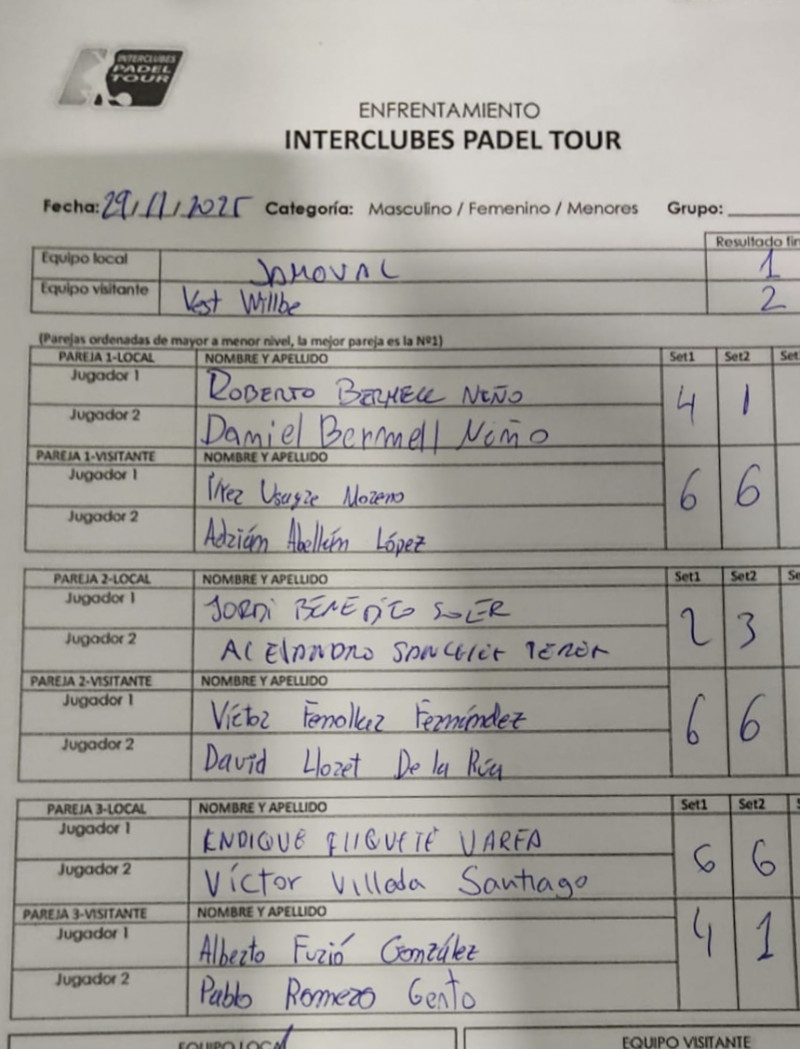 INTERCLUBES
PADEL
TOUR
ENFRENTAMIENTO
INTERCLUBES PADEL TOUR
Fecha: 29/11/2025 Categoría: Masculino / Femenino / Menores Grupo:
Resultado fin
Equipo local SAMOVAL 1
Equipo visitante Vest Willbe 2
(Parejas ordenadas de mayor a menor nivel, la mejor pareja es la Nº1)
PAREJA 1-LOCAL NOMBRE Y APELLIDO Set1 Set2 Set
Jugador 1 ROBERTO BERMELL NIÑO 4 1
Jugador 2 Daniel Bermell Niño
PAREJA 1-VISITANTE NOMBRE Y APELLIDO
Jugador 1 Moreno 6 6
Jugador 2 Adrián Abellán López
PAREJA 2-LOCAL NOMBRE Y APELLIDO Set1 Set2 Se
Jugador 1 JORDI BENEDITO SOLER 2 3
Jugador 2 ALEJANDRO
PAREJA 2-VISITANTE NOMBRE Y APELLIDO
Jugador 1 Víctor Fenollar Fernández 6 6
Jugador 2 David Lloret De la Rúa
PAREJA 3-LOCAL NOMBRE Y APELLIDO Set1 Set2 S
Jugador 1 ENRIQUE VAREA 6 6
Jugador 2 Víctor Villada Santiago
PAREJA 3-VISITANTE NOMBRE Y APELLIDO
Jugador 1 Alberto Furió González 4 1
Jugador 2 Pablo Romero Gento
EQUIPO LOCAL EQUIPO VISITANTE